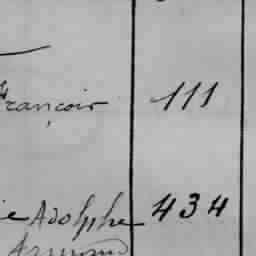 François 111
ie Adolphe 434
Armand